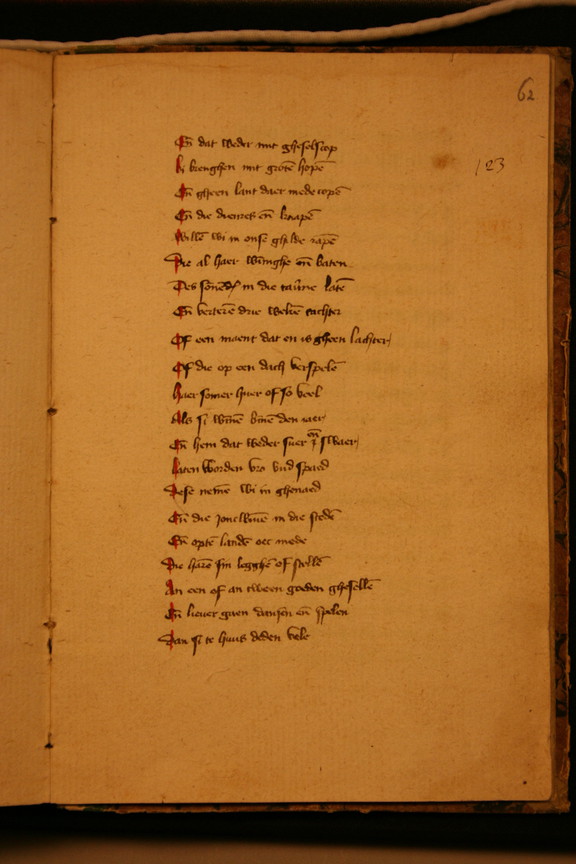 62
123
En̄ dat weder mit gheselscop
Si brenghen mit grotē hopē
En̄ gheen lant daer mede copē
En̄ die dienres en̄ knapē
Willē wi in onse ghilde rapē
Die al haer winnighe en̄ baten
Des in die tau̅ne latē
En̄ verterē drie weke achter
Of een maent dat en is gheen lachter
Of die op een dach verspelē
Haer somer huer of so veel
Als si winnē binē den iaer
En̄ hem dat weder suer en̄ swaer
Laten worden vro vnd spaed
Dese nemē wi in ghenaed
En̄ die joncwiue in die stedē
En̄ optē landē oec mede
Die harē sin legghē of stellē
An een of an tween goeden ghesellē
En̄ lieuer gaen dansen en̄ spelen
Dan si te huus deden vele